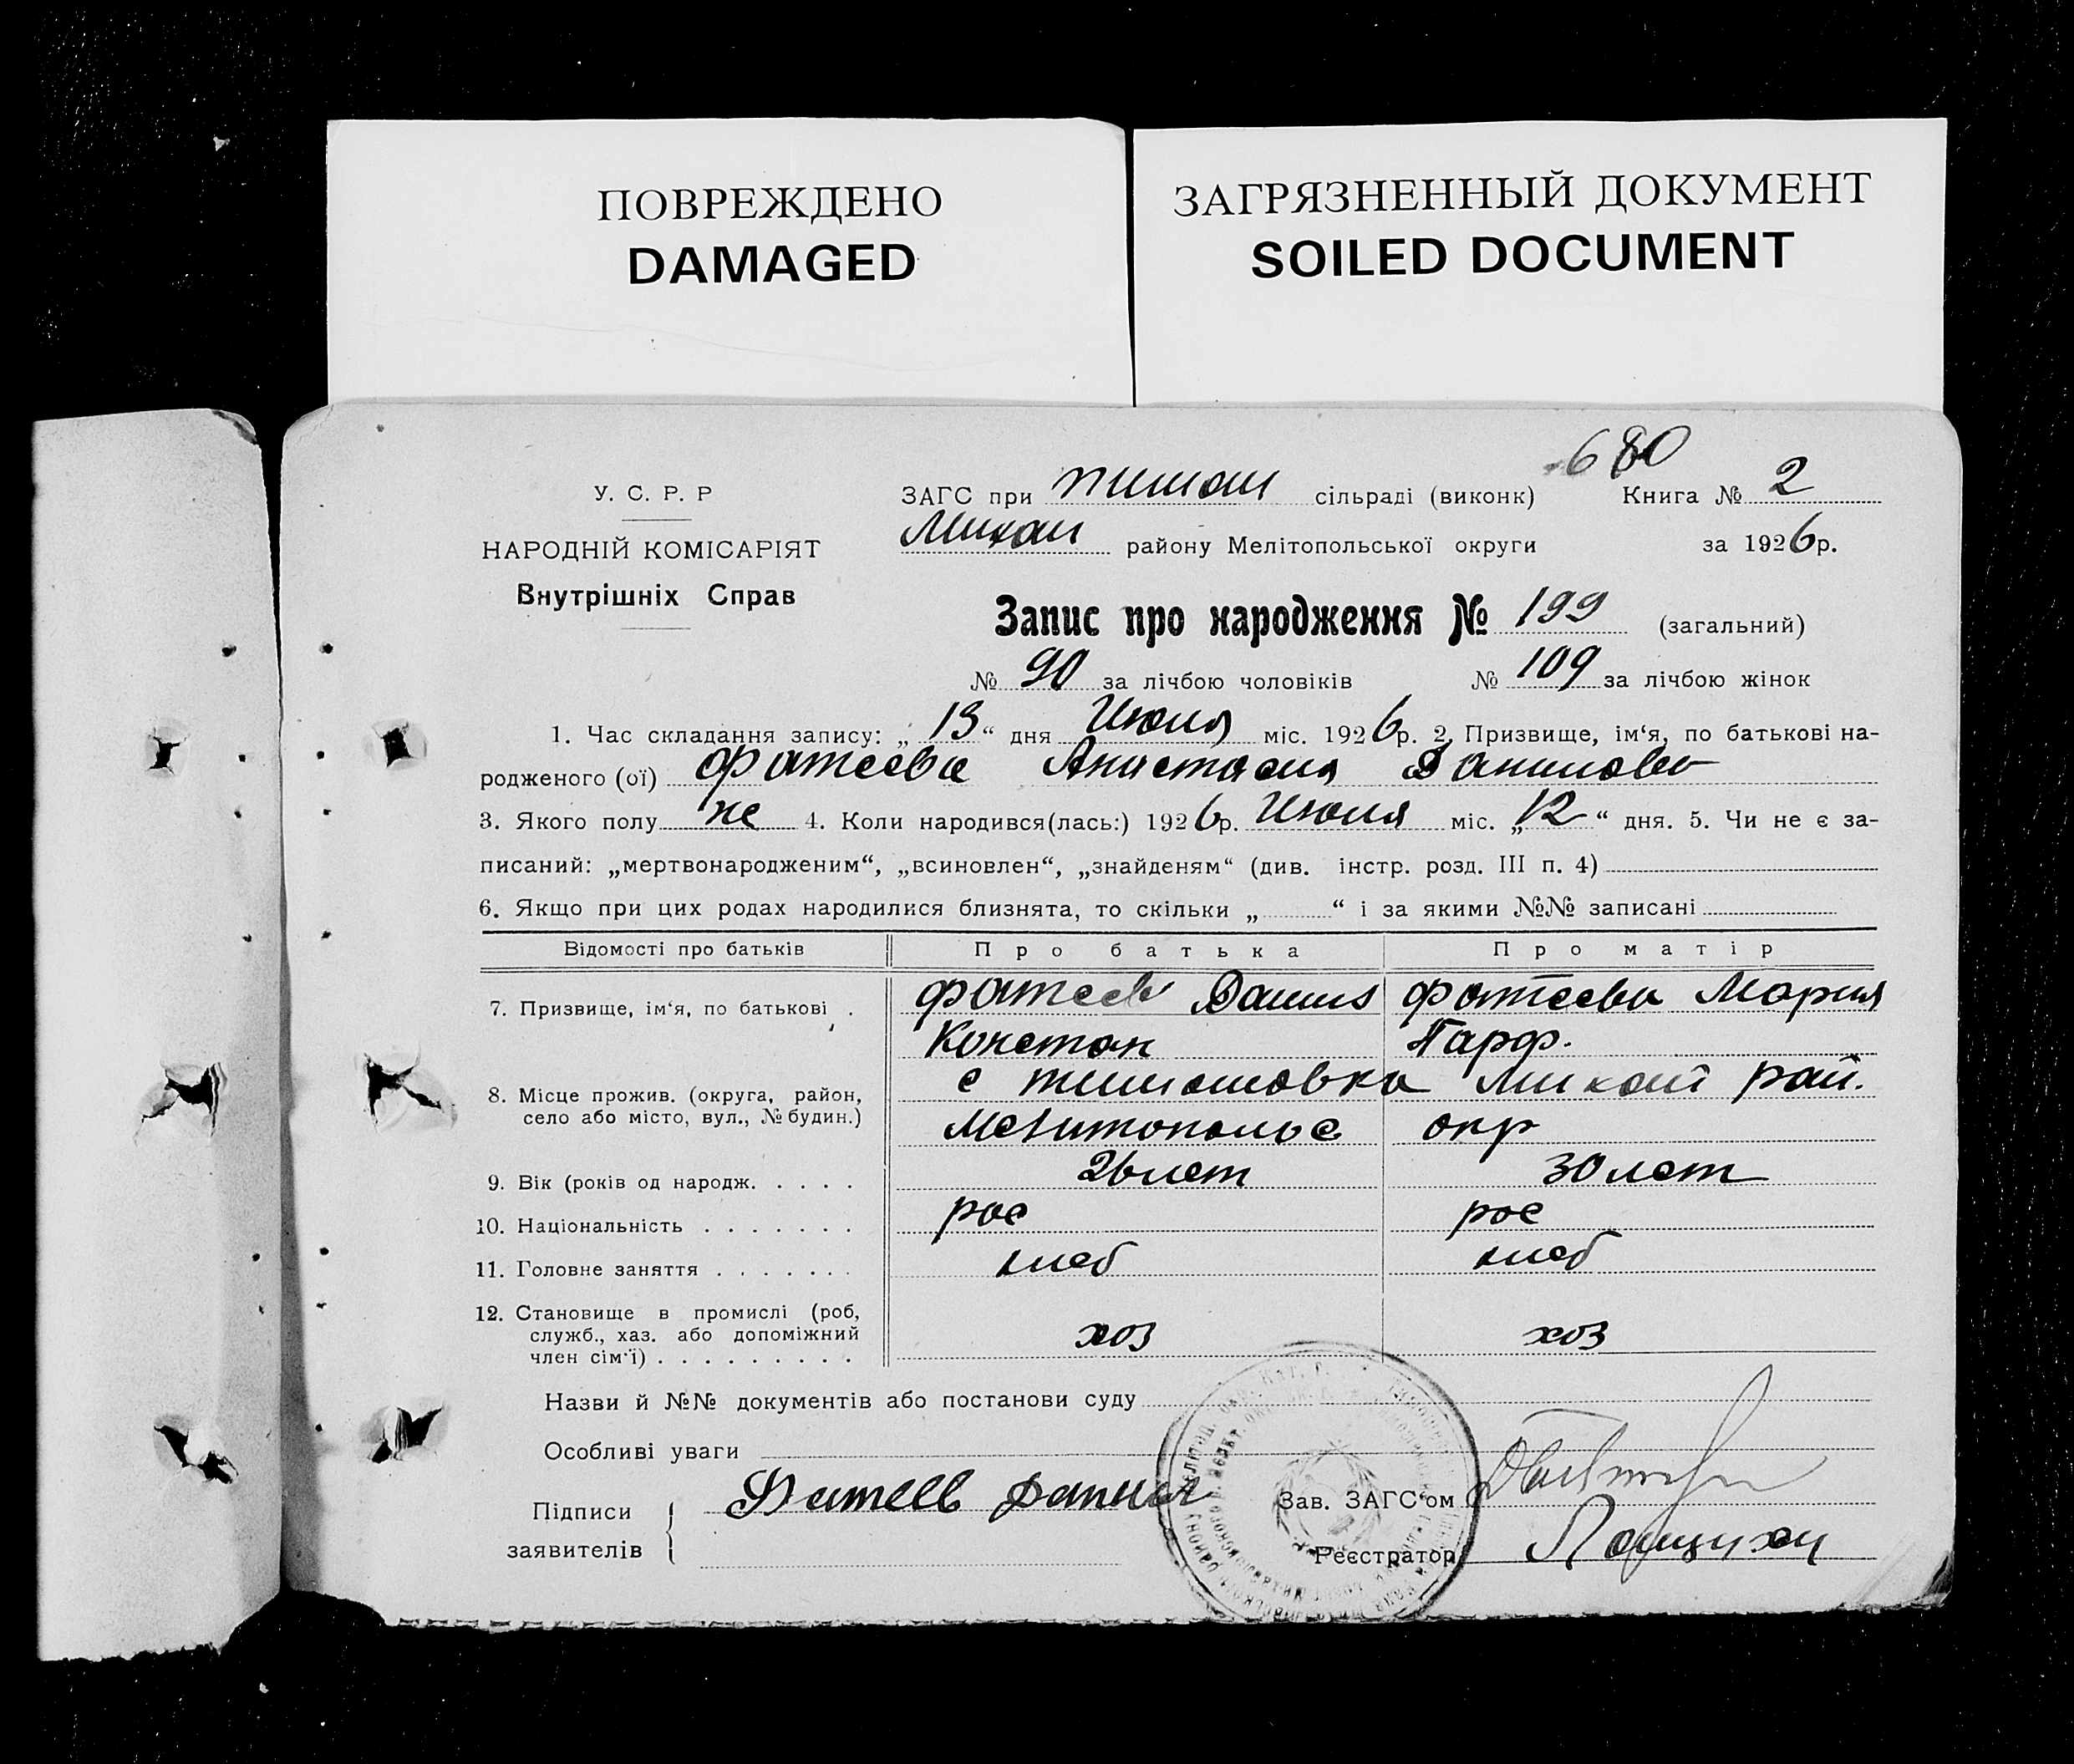 ПОВРЕЖДЕНО
DAMAGED
ЗАГРЯЗНЕННЫЙ ДОКУМЕНТ
SOILED DOCUMENT
680
У. С. Р. Р
НАРОДНІЙ КОМІСАРІЯТ
Внутрішніх Справ
ЗАГС при тимош сільраді (виконк) Книга № 2
Михай району Мелітопольської округи за 1926р.
Запис про народження № 199 (загальний)
№ 90 за лічбою чоловіків № 109 за лічбою жінок
1. Час складання запису: „13“ дня Июля міс. 1926р. 2. Призвище, ім‘я, по батькові на-
родженого (ої) Фатеева Анастасия Данилов
3. Якого полу же 4. Коли народився(лась:) 1926р. Июля міс. „12“ дня. 5. Чи не є за-
писаний: „мертвонародженим“, „всиновлен“, „знайденям“ (див. інстр. розд. III п. 4)
6. Якщо при цих родах народилися близнята, то скільки „ “ і за якими №№ записані
Відомості про батьків Про батька Про матір
7. Призвище, ім‘я, по батькові . Фатеев Данил Фатеева Мария
Констан Парф.
8. Місце прожив. (округа, район, с тимошовка Михай рай.
село або місто, вул., № будин.) Мелитопольс окр
9. Вік (років од народж. . . . . 26 лет 30 лет
10. Національність . . . . . . . рос рос
11. Головне заняття . . . . . . . хлеб хлеб
12. Становище в промислі (роб,
служб., хаз. або допоміжний хоз хоз
член сім‘ї) . . . . . . . . .
Назви й №№ документів або постанови суду
Особливі уваги
Підписи Фатеев Данил Зав. ЗАГС‘ом
заявителів Реєстратор